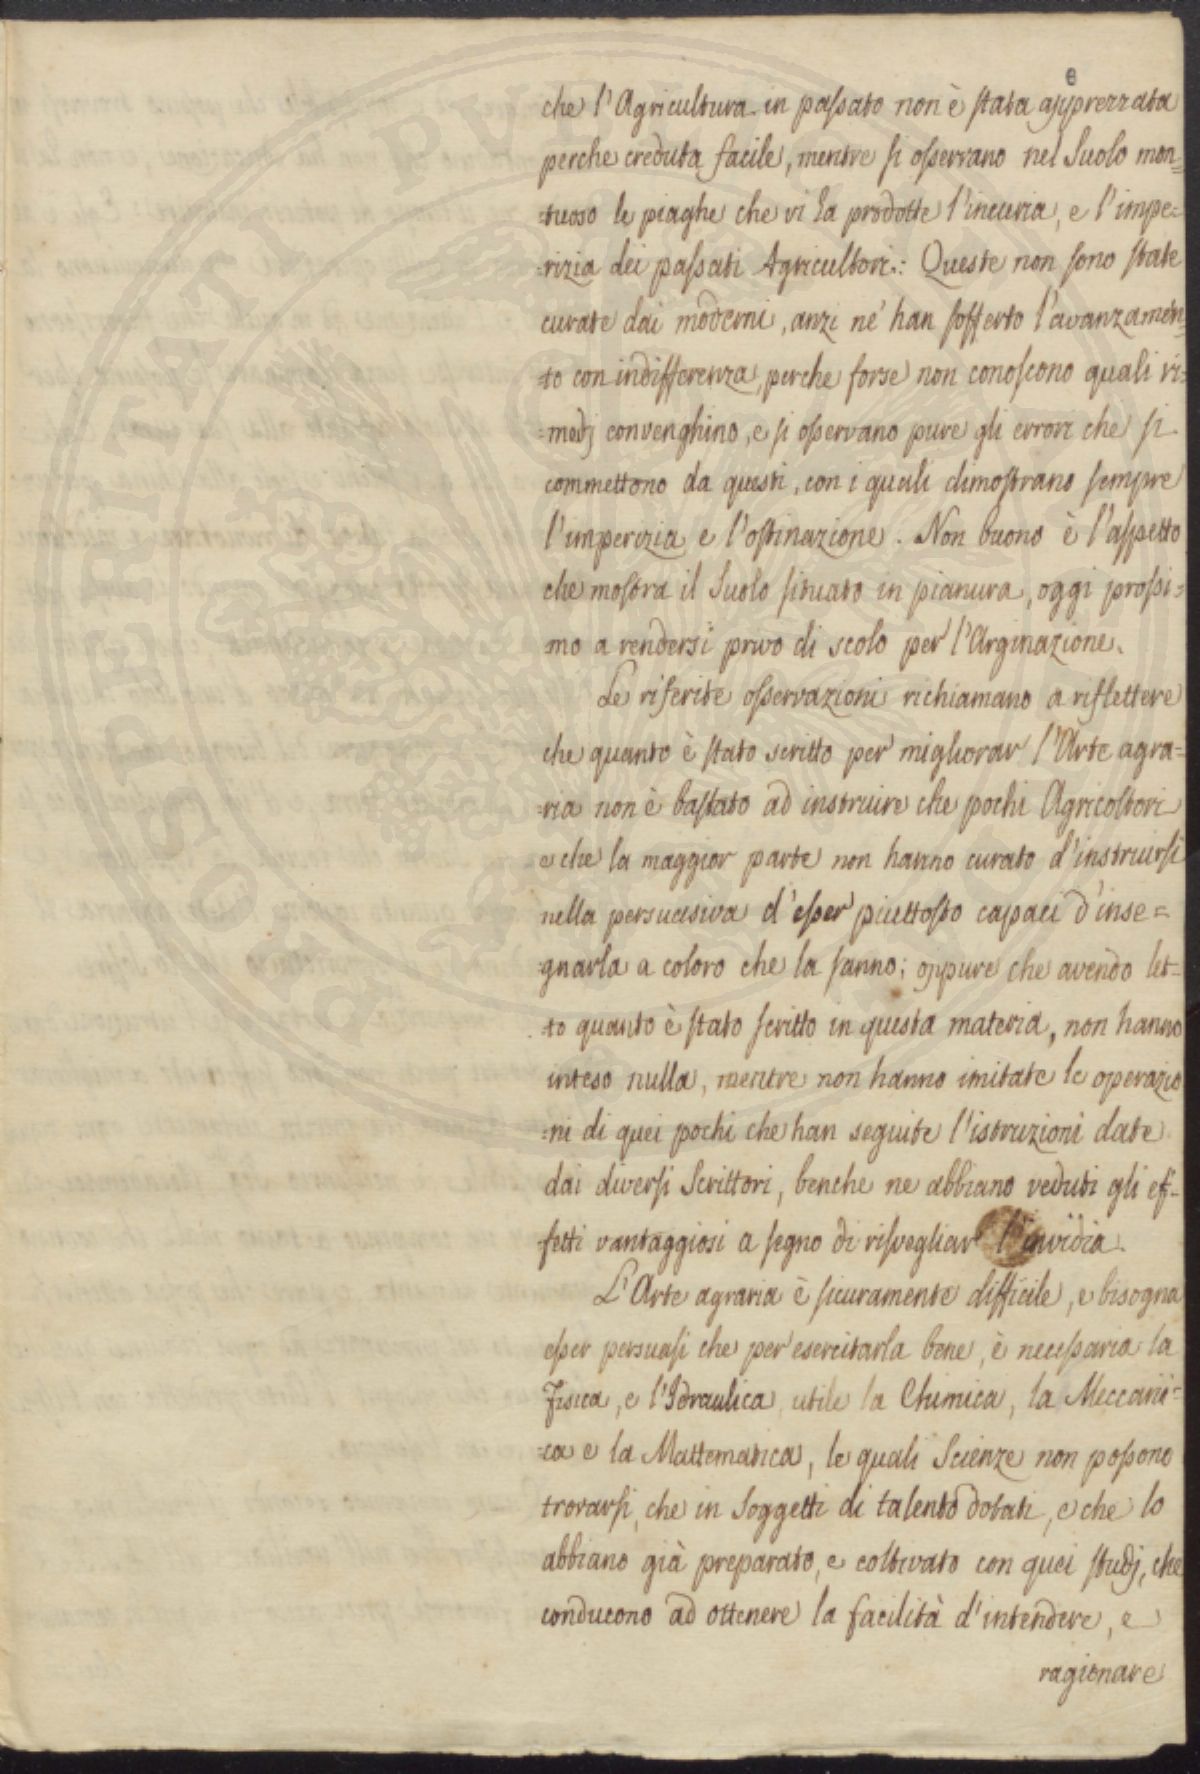 che l'Agricultura in paſsato non è ſtata apprezzata
perche creduta facile, mentre ſi oſservano nel Suolo mon=
=tuoso le piaghe che vi ha prodotte l'incuria, e l'impe=
=rizia dei paſsati Agricultori: Queste non ſono ſtate
curate dai moderni, anzi ne han ſofferto l'avanzamen=
=to con indifferenza, perche forse non conoſcono quali ri=
=medj convenghino, e ſi oſservano pure gli errori che ſi
commettono da questi, con i quali dimoſtrano ſempre
l'imperizia e l'oſtinazione. Non buono è l'aſpetto
che moſtra il Suolo ſituato in pianura, oggi proſsi=
mo a rendersi privo di scolo per l'Arginazione.
Le riferite oſservazioni richiamano a riflettere
che quanto è ſtato scritto per migliorar l'Arte agra=
=ria non è baſtato ad instruire che pochi Agricoltori
e che la maggior parte non hanno curato d'instruirſi
nella persuasiva d'eſser piuttoſto capaci d'inse=
gnarla a coloro che la ſanno; oppure che avendo let=
=to quanto è ſtato ſcritto in questa materia, non hanno
inteso nulla, mentre non hanno imitate le operazio
=ni di quei pochi che han seguite l'istruzioni date
dai diverſi Scrittori, benche ne abbiano veduti gli ef=
=fetti vantaggiosi a ſegno di riſvegliar l'invidia.
L'Arte agraria è ſicuramente difficile, e bisogna
eſser persuaſi che per esercitarla bene, è neceſsaria la
Fisica, e l'Idraulica, utile la Chimica, la Meccani=
=ca e la Mattematica, le quali Scienze non poſsono
trovarſi, che in Soggetti di talento dotati, e che lo
abbiano già preparato, e coltivato con quei ſtudj, che
conducono ad ottenere la facilità d'intendere, e
ragionare